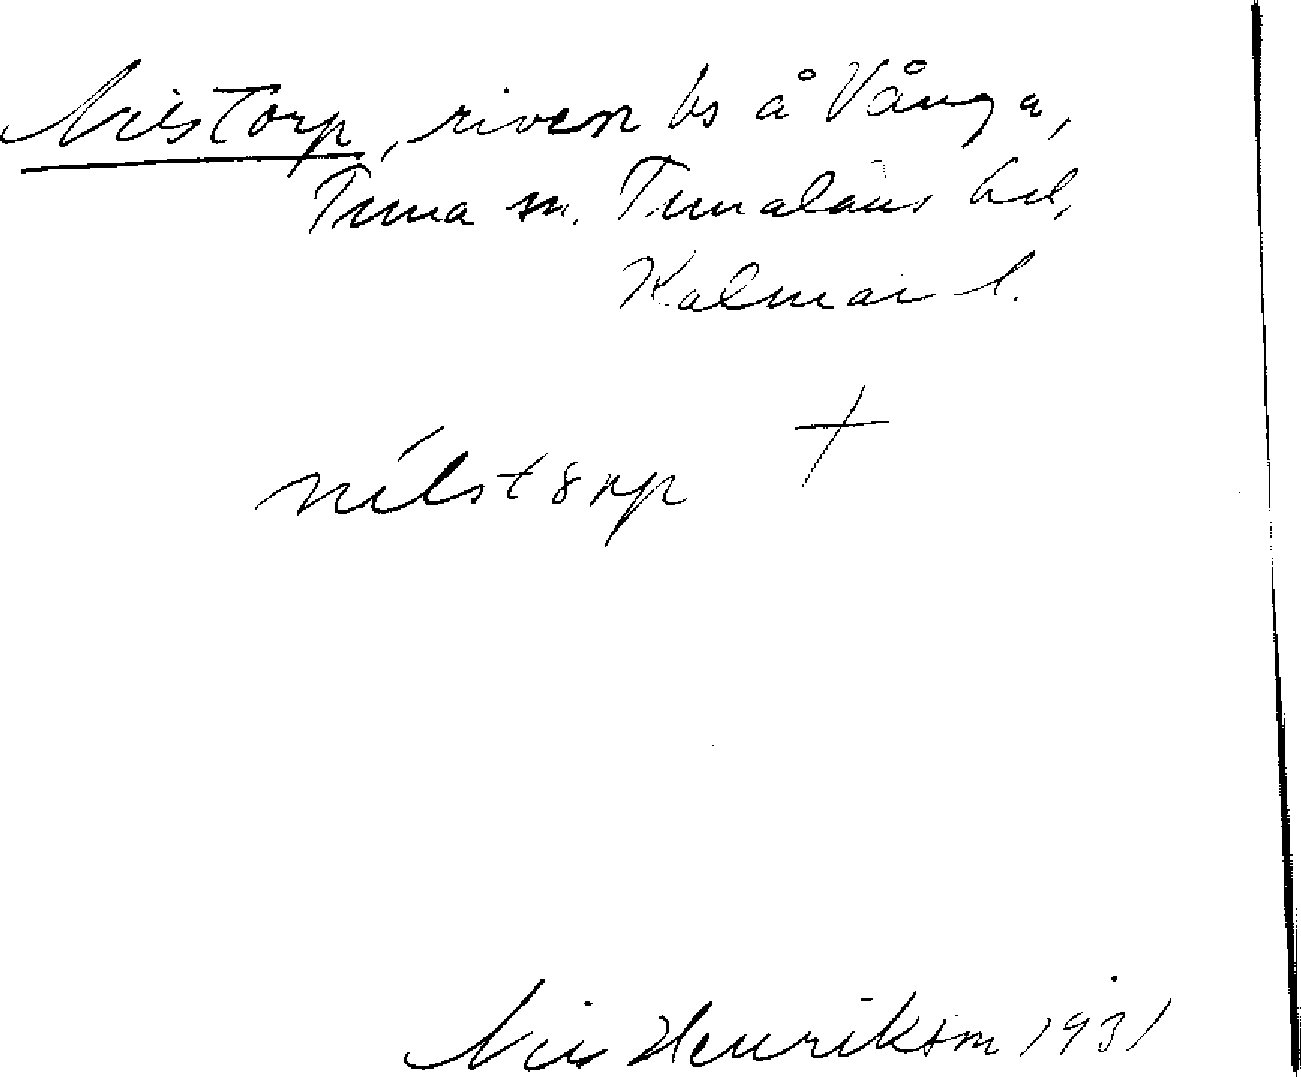 Nilstorp, riven bs å Vånga,
Tuna sn. Tunaläns hd,
Kalmar l.
+
nilst8rp
Nils Henriksson 1931